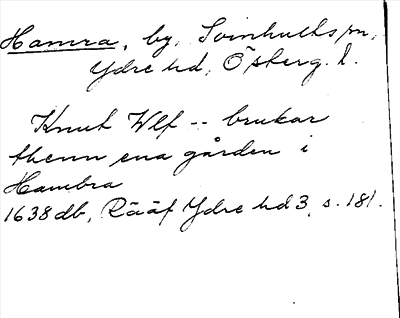 Hamra, by, Svinhults sn,
Ydre hd, Österg. l.
Knut Wlf -- brukar
thenn ena gården i
Hambra
1638 db, Rääf Ydre hd 3, s. 181.